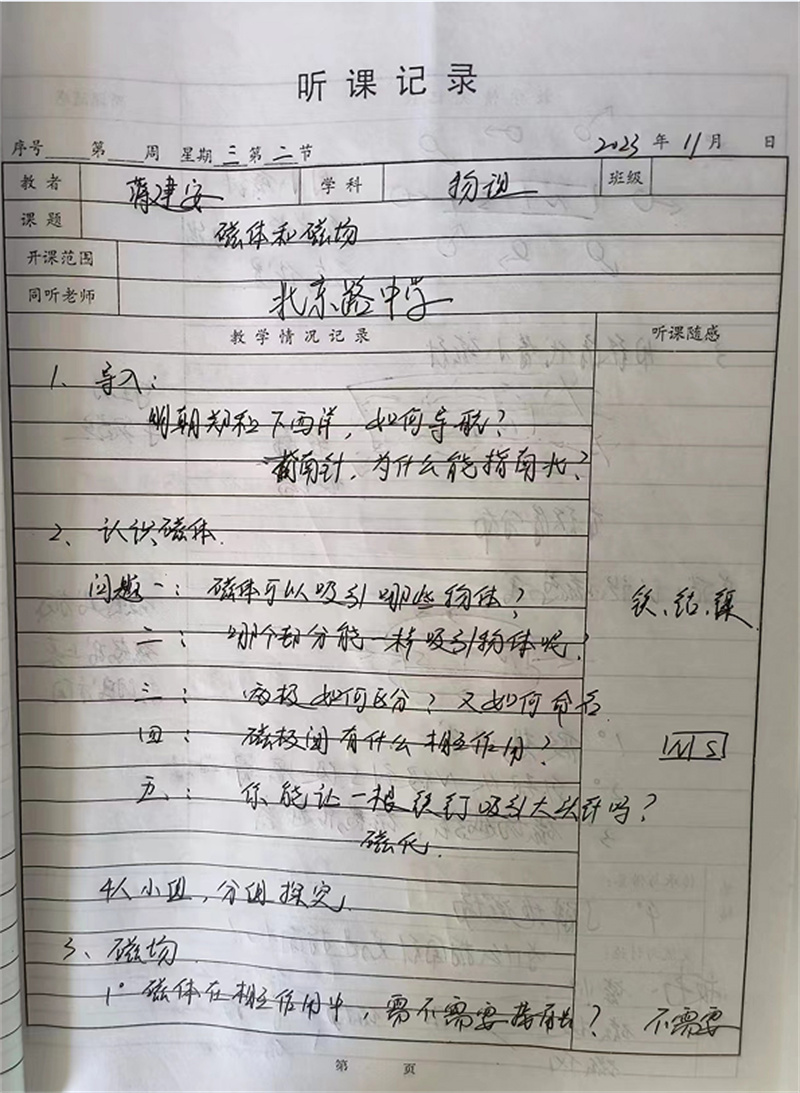 听课记录
序号 第 周 星期三第二节 2023年11月 日
教者 蒋建安 学科 物理 班级
课题 磁体和磁场
开课范围
同听老师 北京路中学
教学情况记录 听课随感
1、导入：
明朝郑和下西洋，如何导航？
指南针，为什么能指南北？
2、认识磁体.
问题一：磁体可以吸引哪些物体？ 铁、钴、镍.
二：哪个部分能一样吸引物体呢？
三：两极如何区分？又如何命名
四：磁极间有什么相互作用？ N S
五：你能让一根铁钉吸引大头针吗？
磁化.
4人小组，分组探究
3、磁场
1° 磁体在相互作用中，需不需要接触？ 不需要
第 页